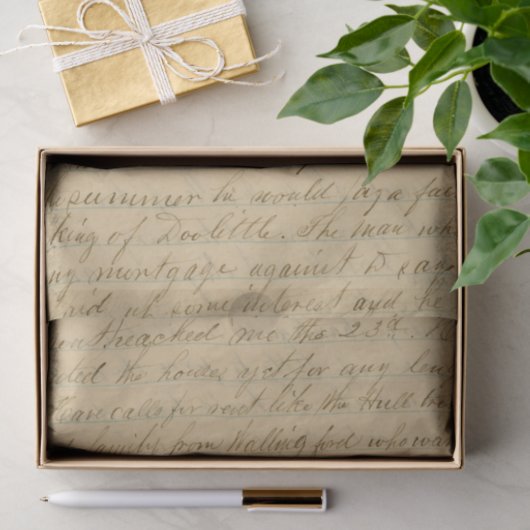 summer he would pay a fair
king of Doolittle. The man wh
ny mortgage against D say
aid up some interest and he
reached me the 23d.
the houses yet for any len
Have calls for rent like the Hull tre
family from Wallingford who wan